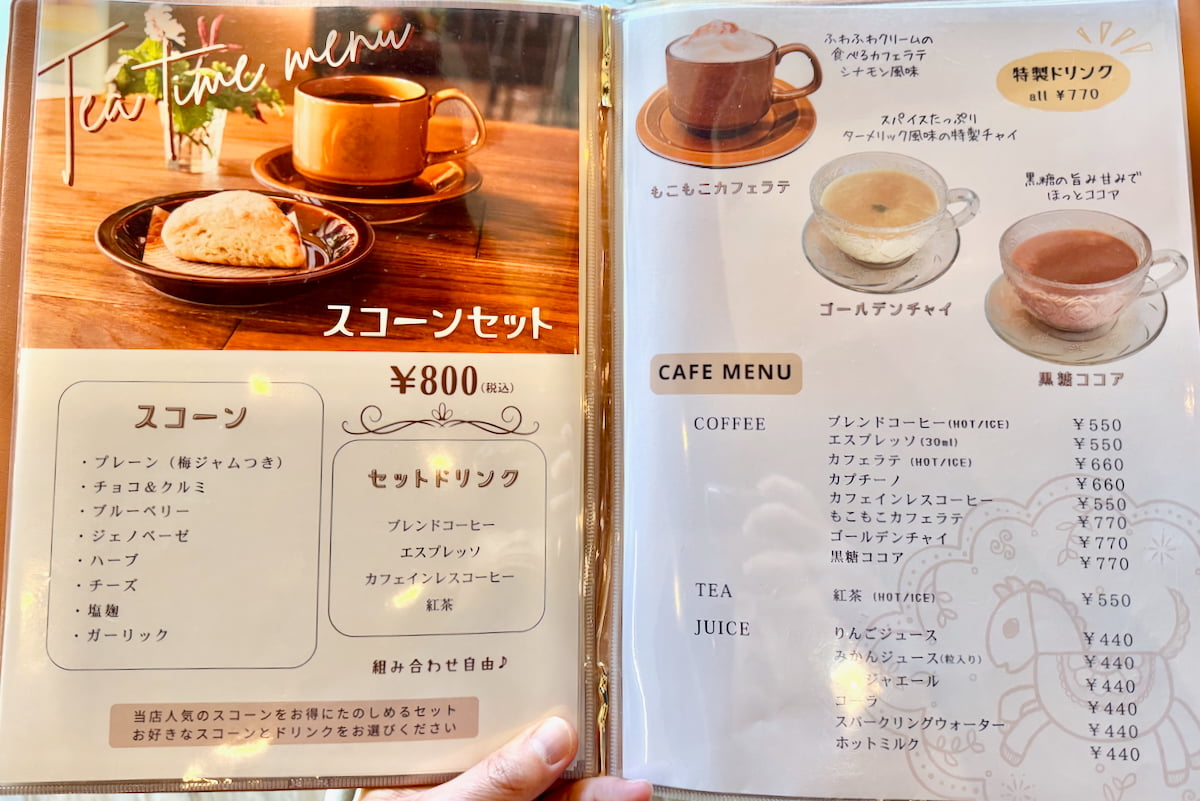 Tea Time menu
スコーンセット
¥800(税込)
スコーン
・プレーン（梅ジャムつき）
・チョコ&クルミ
・ブルーベリー
・ジェノベーゼ
・ハーブ
・チーズ
・塩麹
・ガーリック
セットドリンク
ブレンドコーヒー
エスプレッソ
カフェインレスコーヒー
紅茶
組み合わせ自由♪
当店人気のスコーンをお得にたのしめるセット
お好きなスコーンとドリンクをお選びください
ふわふわクリームの
食べるカフェラテ
シナモン風味
もこもこカフェラテ
特製ドリンク
all ¥770
スパイスたっぷり
ターメリック風味の特製チャイ
ゴールデンチャイ
黒糖の旨み甘みで
ほっとココア
黒糖ココア
CAFE MENU
COFFEE
ブレンドコーヒー(HOT/ICE) ¥550
エスプレッソ(30ml) ¥550
カフェラテ (HOT/ICE) ¥660
カプチーノ ¥660
カフェインレスコーヒー ¥550
もこもこカフェラテ ¥770
ゴールデンチャイ ¥770
黒糖ココア ¥770
TEA
紅茶 (HOT/ICE) ¥550
JUICE
りんごジュース ¥440
みかんジュース(粒入り) ¥440
ジャエール ¥440
コーラ ¥440
スパークリングウォーター ¥440
ホットミルク ¥440